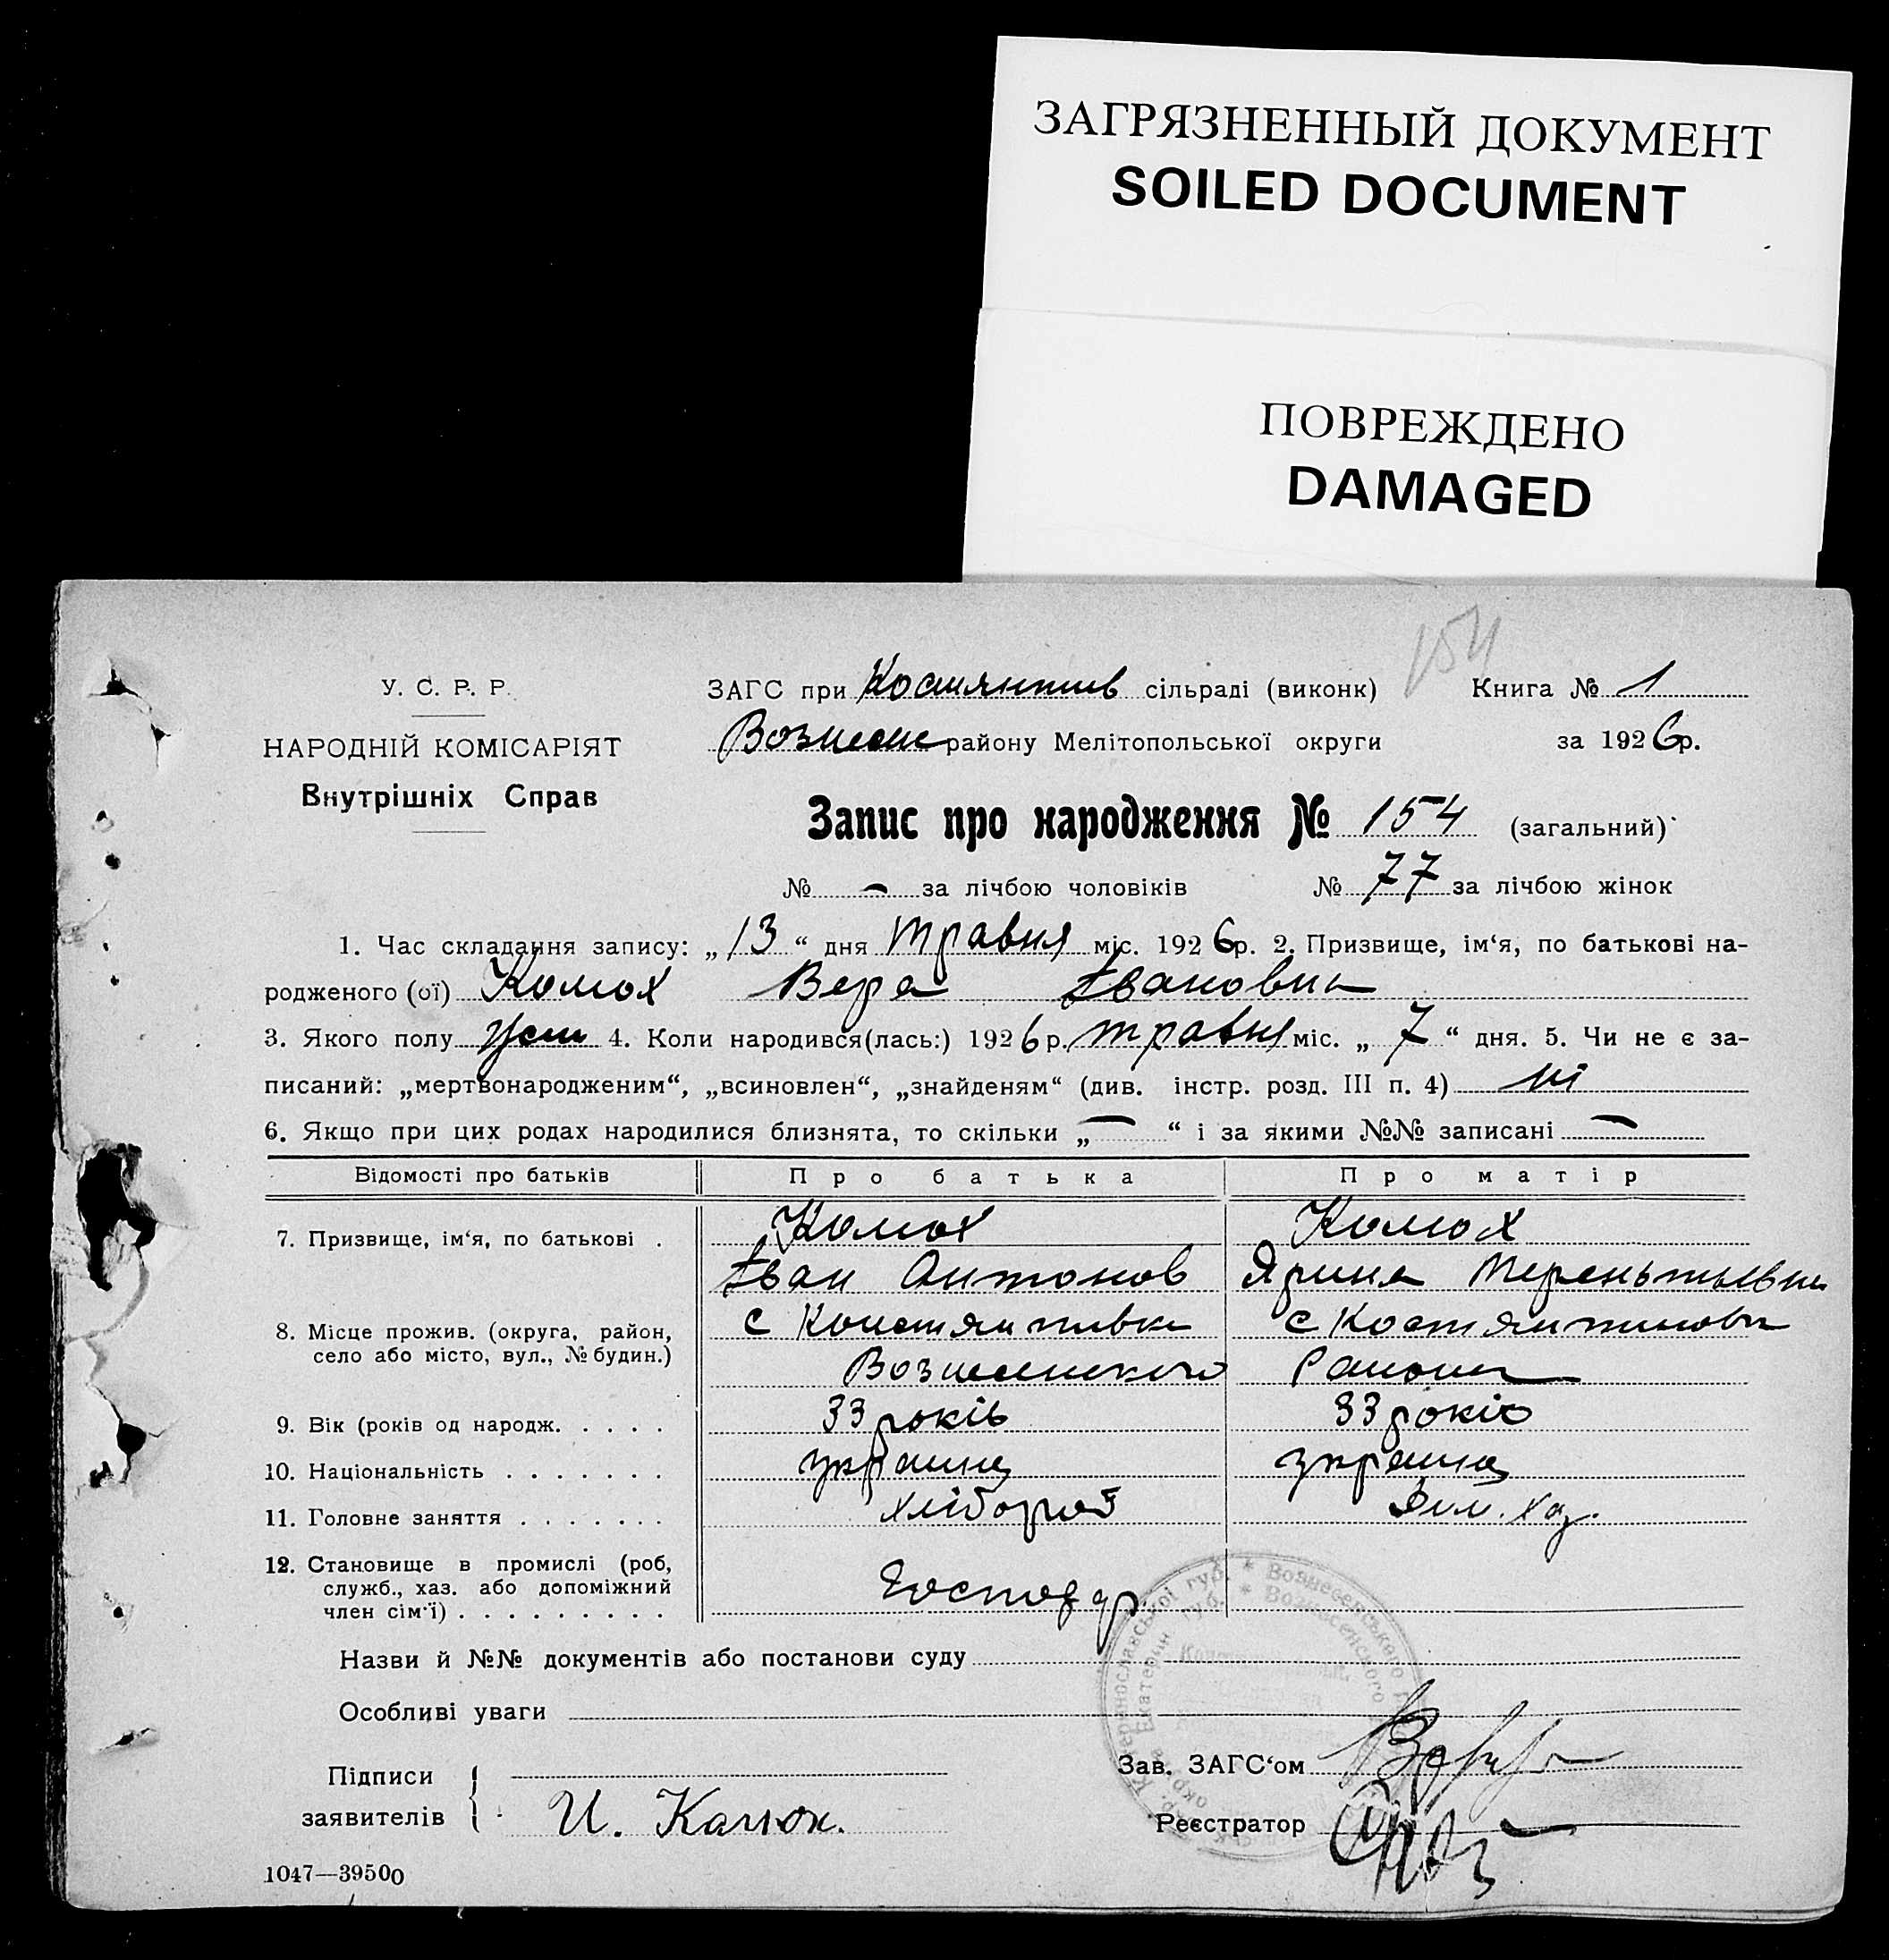 ЗАГРЯЗНЕННЫЙ ДОКУМЕНТ
SOILED DOCUMENT
ПОВРЕЖДЕНО
DAMAGED
154
У. С. Р. Р.
НАРОДНІЙ КОМІСАРІЯТ
Внутрішніх Справ
ЗАГС при Костянтив сільраді (виконк) Книга № 1
Вознесен району Мелітопольської округи за 1926р.
Запис про народження № 154 (загальний)
№ — за лічбою чоловіків № 77 за лічбою жінок
1. Час складання запису: „13“ дня травня міс. 1926р. 2. Призвище, ім‘я, по батькові на-
родженого (ої) Комох Вера Івановна
3. Якого полу жен 4. Коли народився(лась:) 1926р. травня міс. „7“ дня. 5. Чи не є за-
писаний: „мертвонародженим“, „всиновлен“, „знайденям“ (див. інстр. розд. III п. 4) ні
6. Якщо при цих родах народилися близнята, то скільки „—“ і за якими №№ записані —
Відомості про батьків Про батька Про матір
7. Призвище, ім‘я, по батькові . Комох Комох
Іван Антонов Ярина Терентьевна
8. Місце прожив. (округа, район, село або місто, вул., № будин.) с Констянтивка с Костянтиновка
Вознесенского Района
9. Вік (років од народж. . . . . 33 років 33 років
10. Національність . . . . . . . украинц украинц
11. Головне заняття . . . . . . . хлібороб Дом. хаз.
12. Становище в промислі (роб, служб., хаз. або допоміжний член сім‘ї) . . . . . . . . . Господар
Назви й №№ документів або постанови суду
Особливі уваги
Підписи
заявителів И. Камох.
Зав. ЗАГС‘ом
Реєстратор
1047—39500